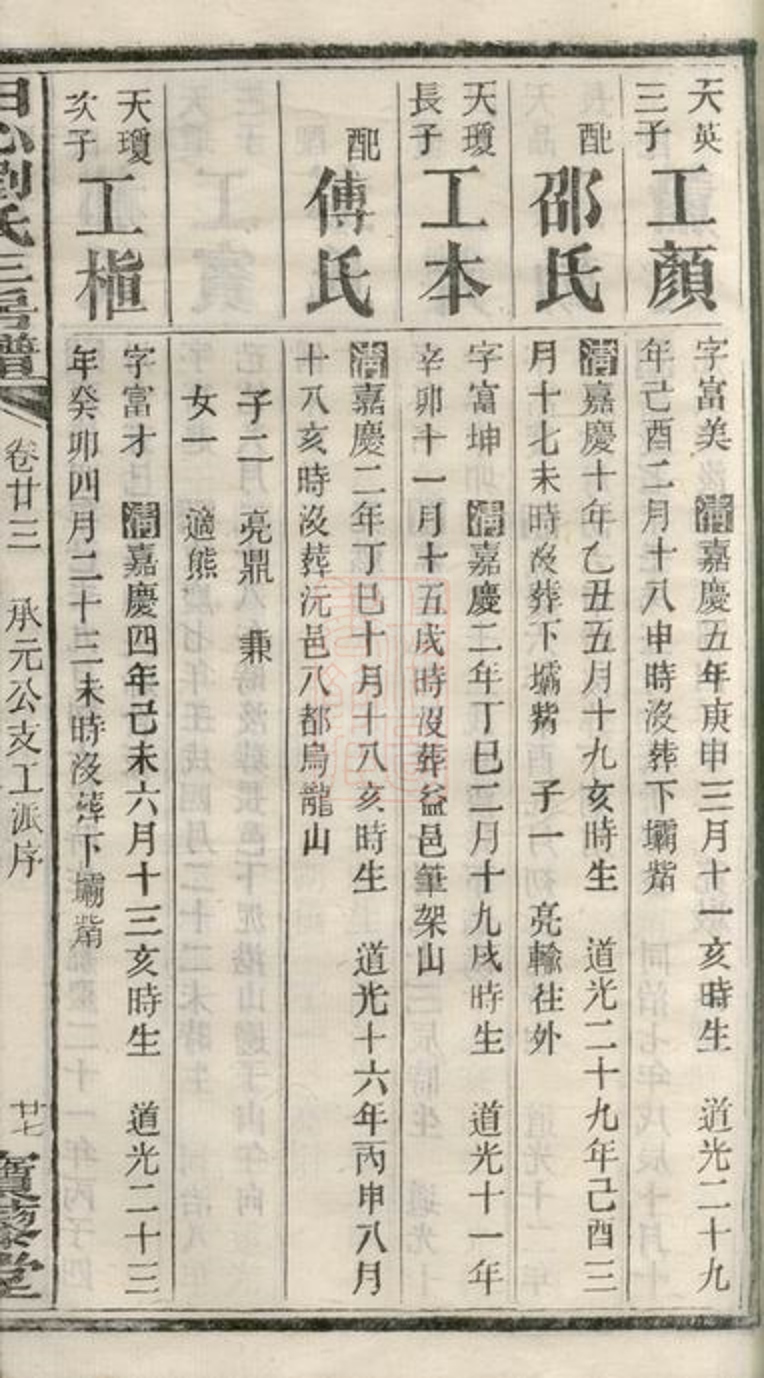 天英
三子
工顏
字富美 清嘉慶五年庚申三月十一亥時生 道光二十九
年己酉二月十八申時沒葬下壩觜
配
邵氏
清嘉慶十年乙丑五月十九亥時生 道光二十九年己酉三
月十七未時沒葬下壩觜 子一 亮輸徃外
天瓊
長子
工本
字富坤 清嘉慶二年丁巳二月十九戌時生 道光十一年
辛卯十一月十五戌時沒葬益邑筆架山
配
傅氏
清嘉慶二年丁巳十月十八亥時生 道光十六年丙申八月
十八亥時沒葬沅邑八都烏龍山
子二 亮鼎 兼
女一 適熊
天瓊
次子
工
字富才 清嘉慶四年己未六月十三亥時生 道光二十三
年癸卯四月二十三未時沒葬下壩觜
劉氏三房譜
卷廿三 承元公支工派序
廿七
堂